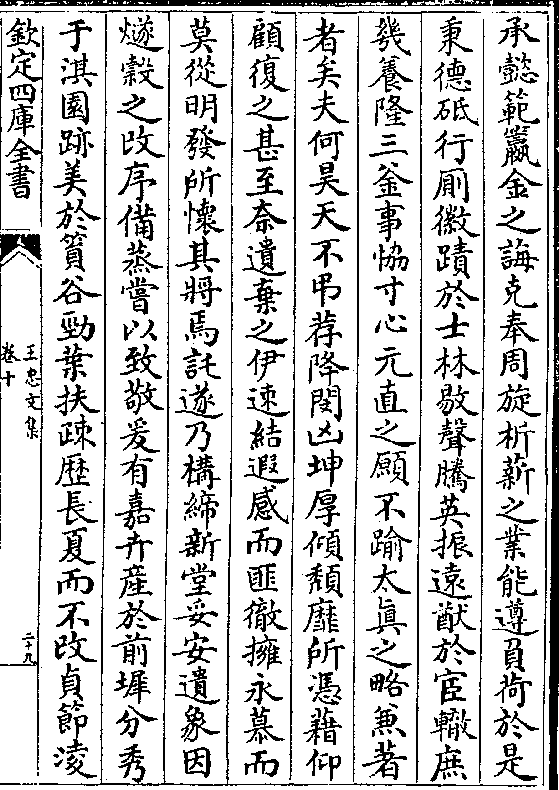 承懿範籯金之誨克奉周旋析薪之業能遵負荷於是
秉德砥行厠徽蹟於士林敭聲騰英振遠猷於宦轍庶
幾養隆三釜事恊寸心元直之願不踰太眞之略兼著
者矣夫何昊天不弔荐降閔凶坤厚傾頽靡所憑藉仰
顧復之甚至奈遺棄之伊速結遐感而匪徹擁永慕而
莫從明發所懷其將焉託遂乃構締新堂妥安遺象因
燧榖之改序備蒸嘗以致敬爰有嘉卉産於前墀分秀
于淇園跡美於篔谷勁葉扶疎歴長夏而不改貞節凌
欽定四庫全書
王忠文集
卷十
二十九